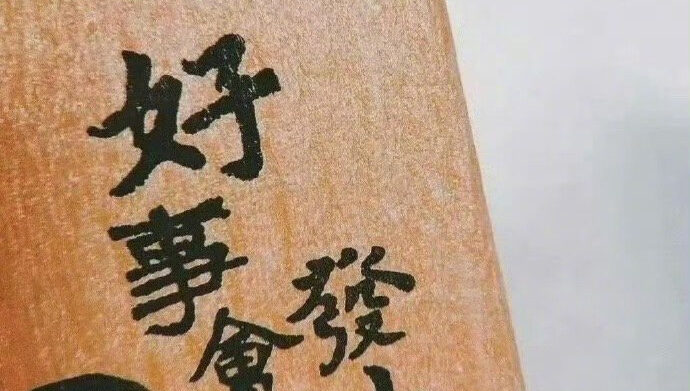 好事會發